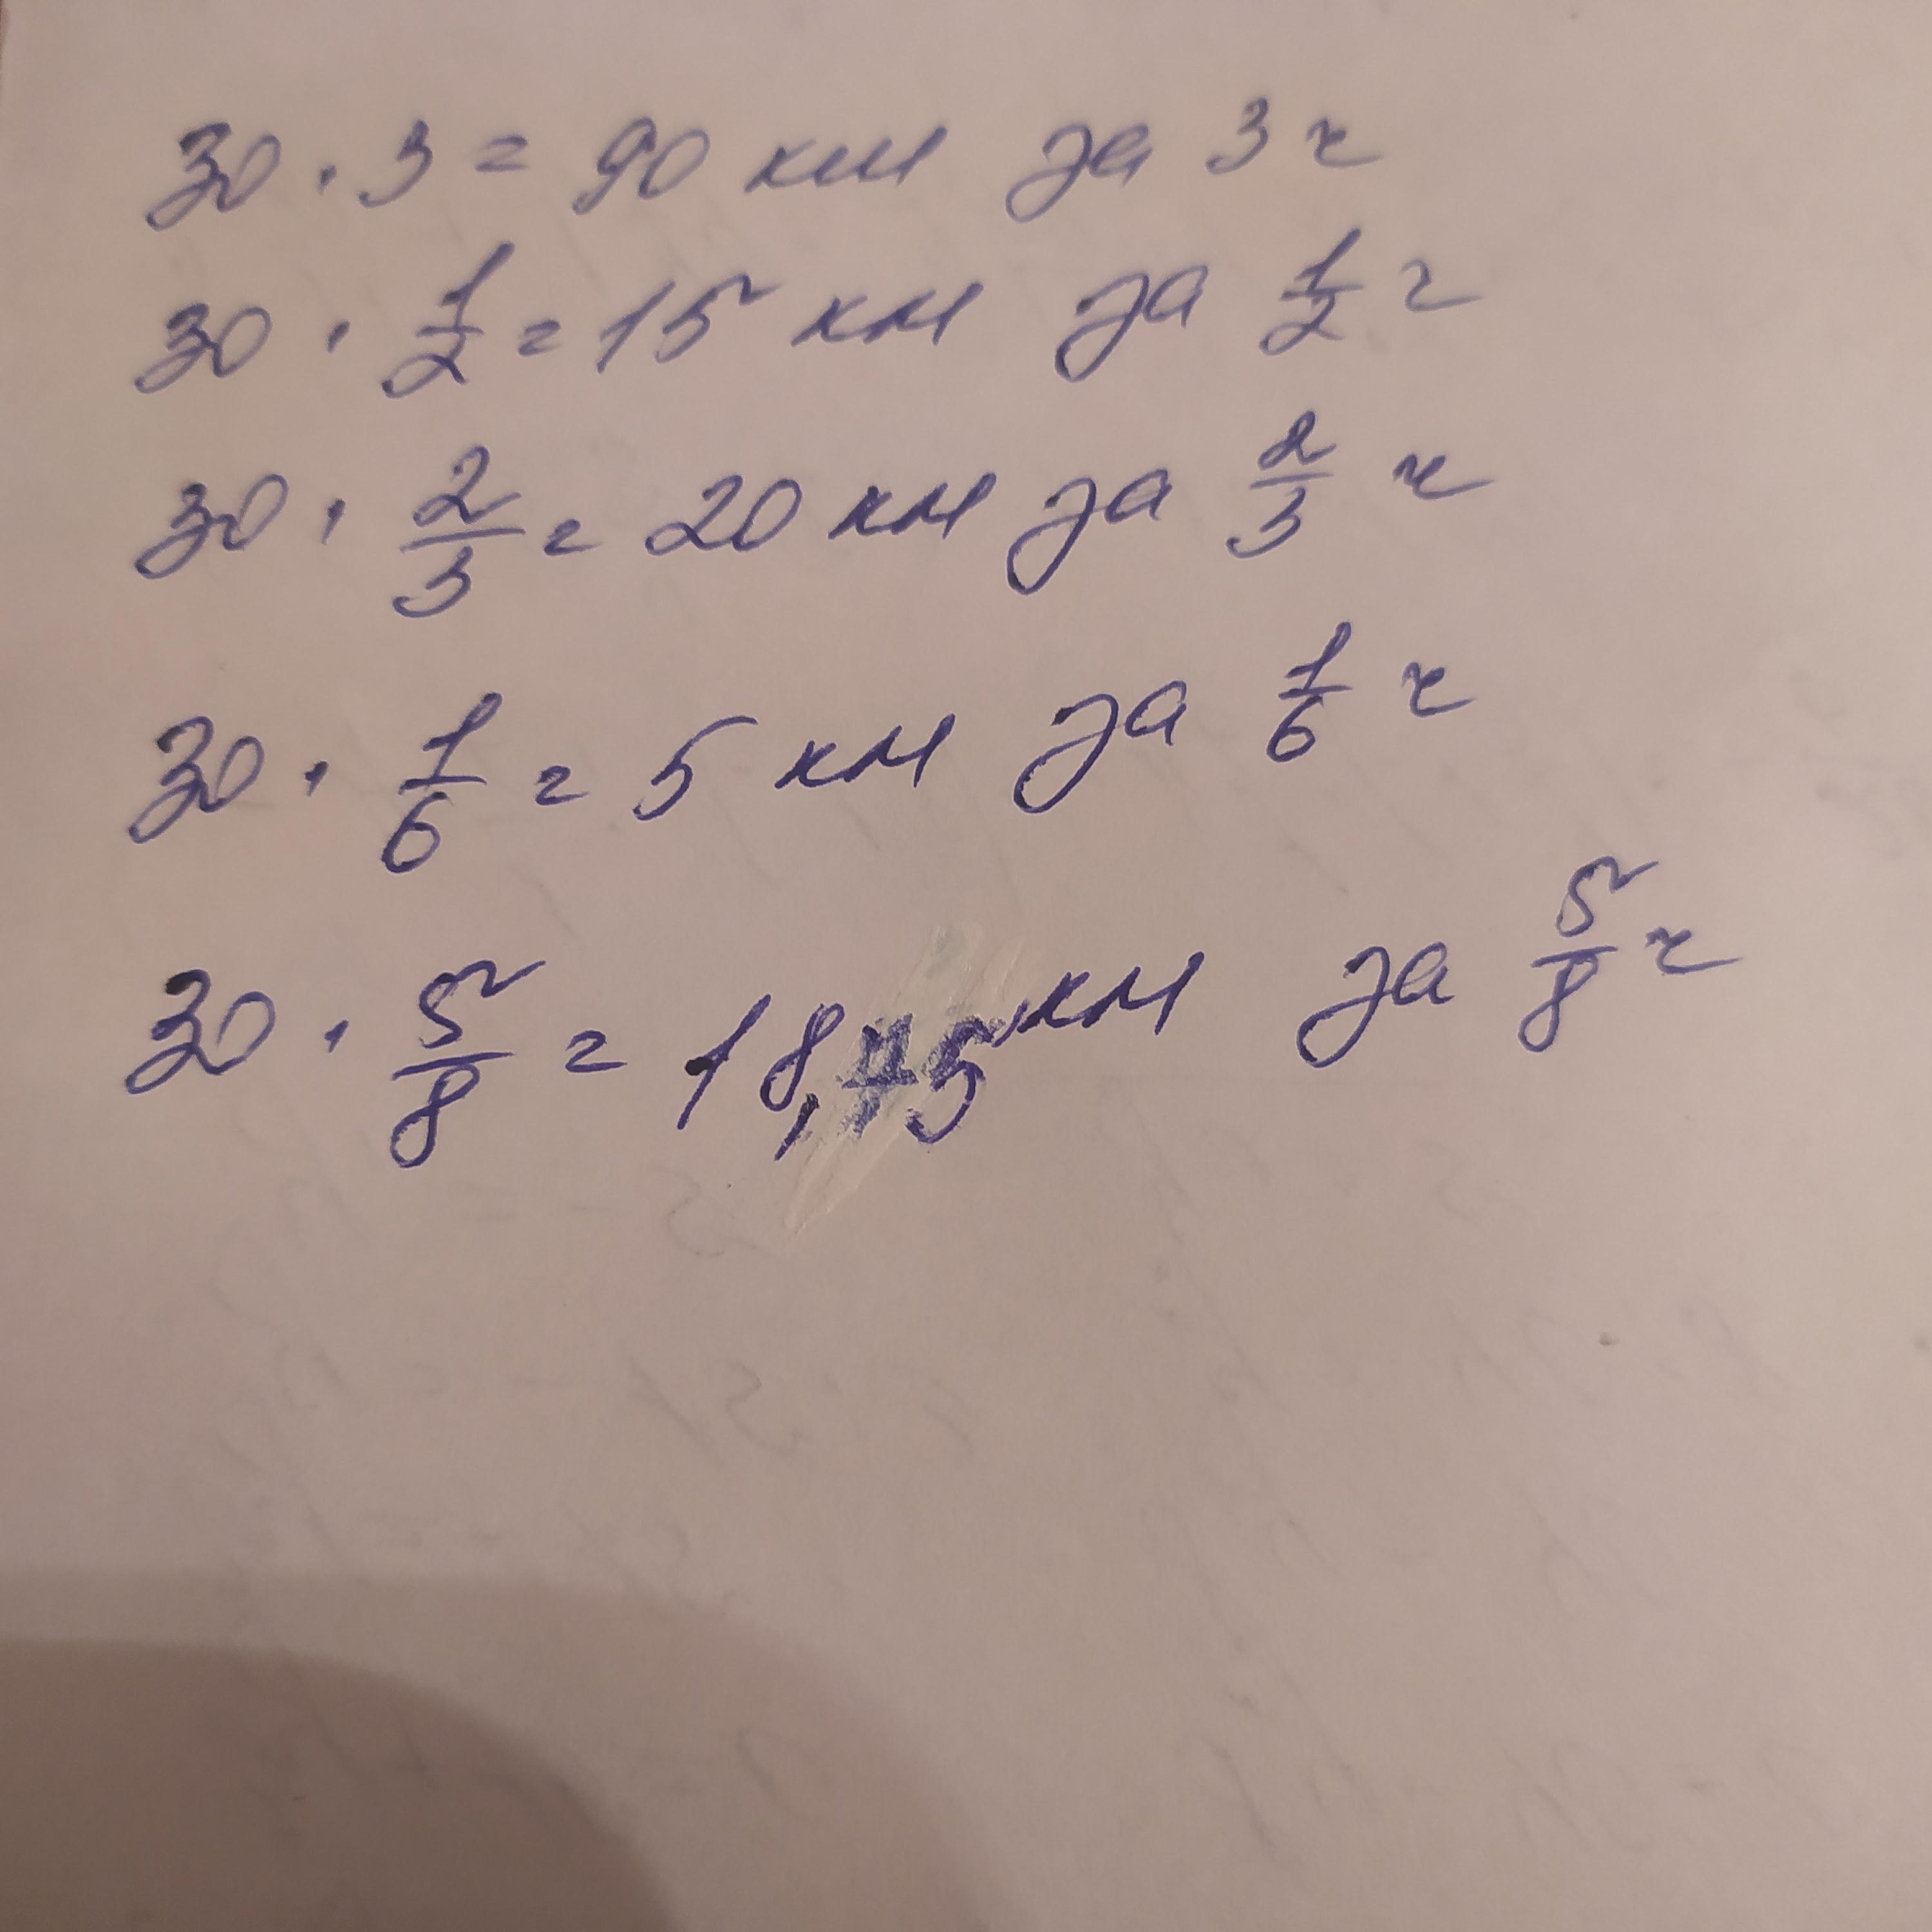 30 · 3 = 90 км за 3 ч
30 · 1/2 = 15 км за 1/2 ч
30 · 2/3 = 20 км за 2/3 ч
30 · 1/6 = 5 км за 1/6 ч
30 · 5/8 = 18,75 км за 5/8 ч